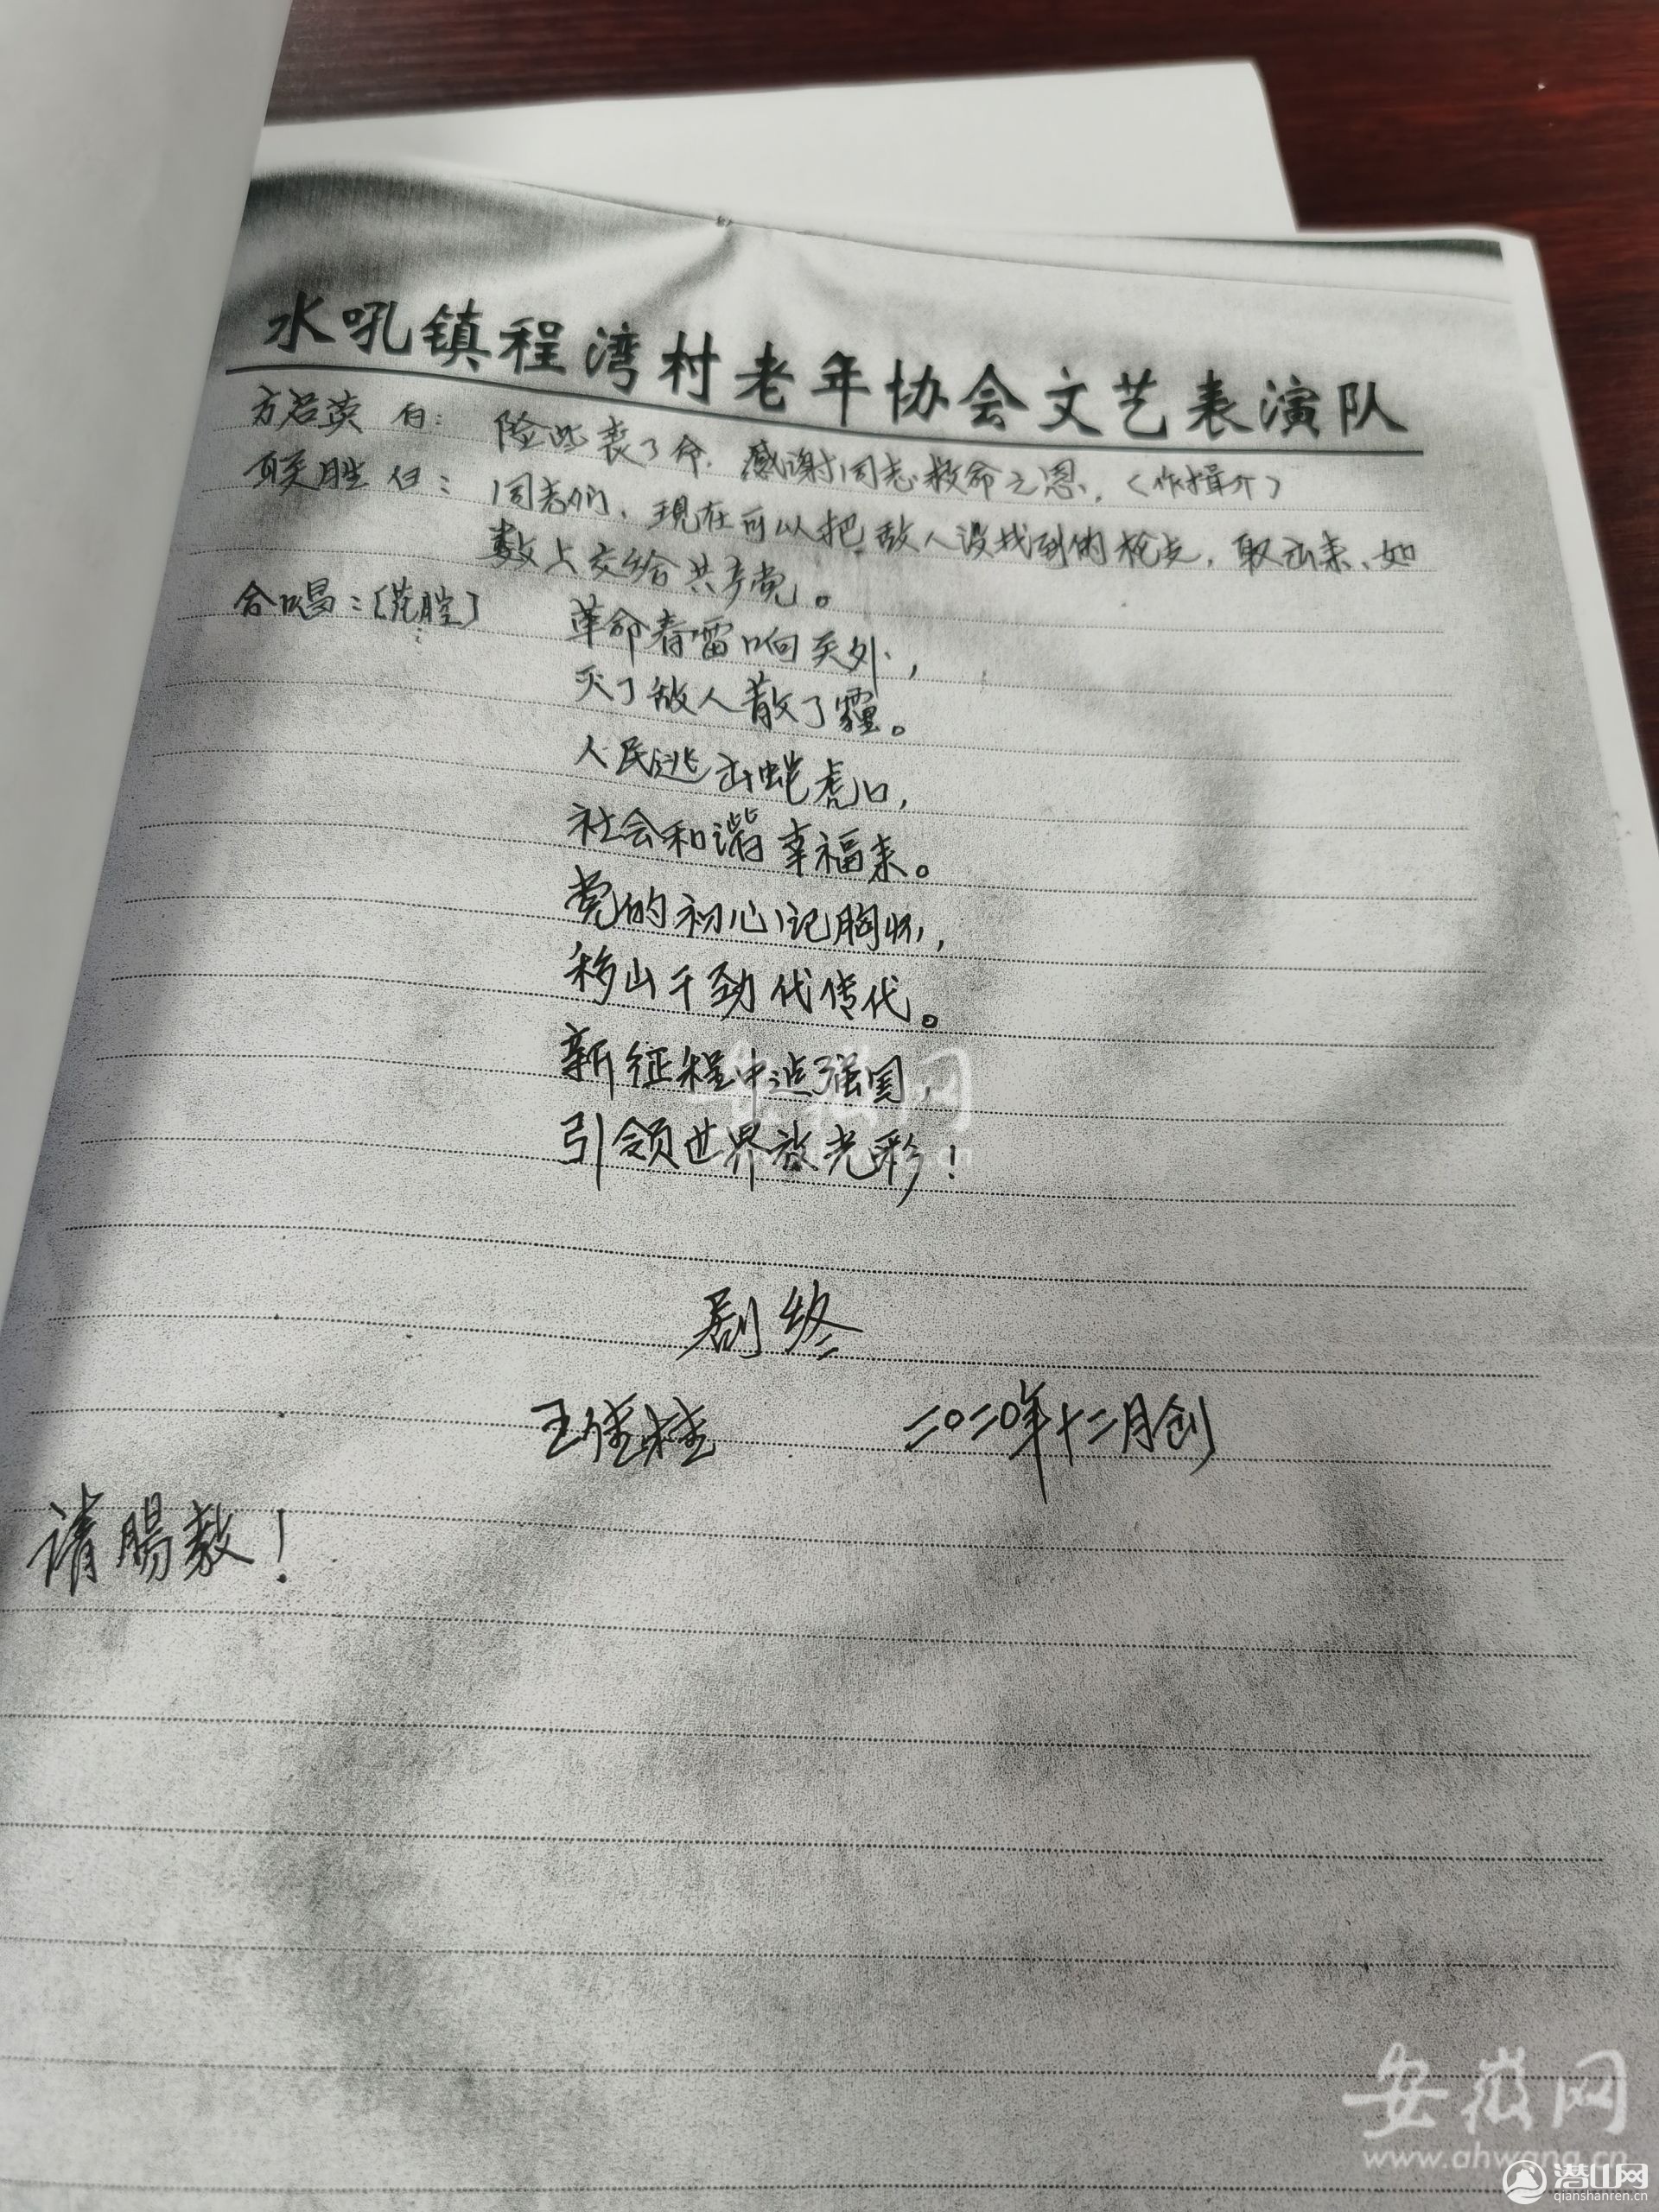 水吼镇程湾村老年协会文艺表演队
方君英 白: 险些丧了命. 感谢同志救命之恩. (作揖介)
天胜 白: 同志们、现在可以把敌人没找到的枪支, 取出来、如
数上交给共产党。
合唱:[花腔] 革命春雷响天外,
灭了敌人散了霾。
人民逃出蛇虎口,
社会和谐幸福来。
党的初心记胸怀,
移山干劲代传代。
新征程中达强国,
引领世界放光彩!
剧终
王佳桂 二〇二〇年十二月创
请赐教!
安徽网
安徽网
www.ahwang.cn
潜山网
qianshanren.cn